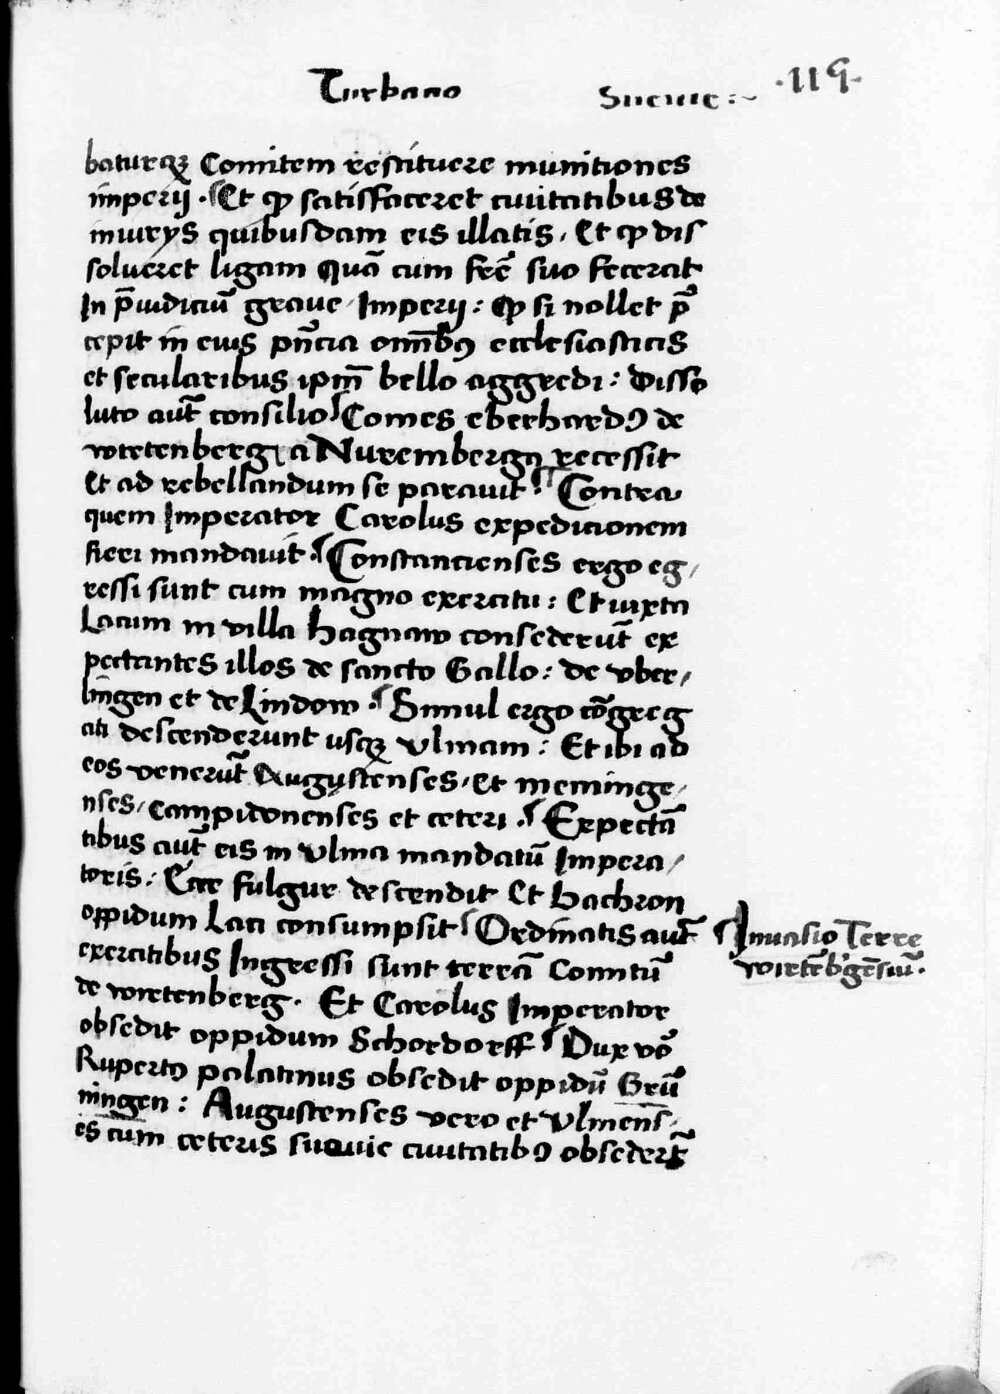 Turbacio Sueuie :~ ·119·
baturqꝫ Comitem restituere munitiones
imperij · Et ꝙ satisfaceret ciuitatibus de
iniurys quibusdam eis illatis, Et ꝙ dis
solueret ligam Quā cum frē suo fecerat
In p̄iudiciū graue Imperij : Qꝙ si nollet p̄
cepit in eius pn̄cia om̄ibꝰ ecclesiasticis
et secularibus ipm̄ bello aggredi : Disso
luto aut̄ consilio Comes eberhardꝰ de
wirtenberg a Nurembergꝫ recessit
Et ad rebellandum se parauit · Contra
quem Imperator Carolus expedicionem
fieri mandauit · Constancienses ergo eg,
ressi sunt cum magno exercitu : Et iuxta
Lacum in villa hagnaw consederūt ex
pectantes illos de sancto Gallo : de vber,
lingen et de Lindow · Simul ergo cōgreg
ati descenderunt usqꝫ vlmam : Et ibi ad
eos venerūt Augustenses, et meminge,
nses, campidonenses et ceteri · Expectā
tibus aut̄ eis in vlma mandatū Impera,
toris : Ecce fulgur descendit Et Bachron
oppidum Laci consumpsit Ordinatis aut̄
exercitibus Ingressi sunt terrā Comitū
de wirtenberg · Et Carolus Imperator
obsedit oppidum Schordorff Dux vō
Rupertꝰ palatinus obsedit oppidū Grū
ningen : Augustenses vero et vlmens̄,
es cum ceteris sueuie ciuitatibꝰ obsedert̄
Inuasio Terre
wirtēb'gēsiū ·